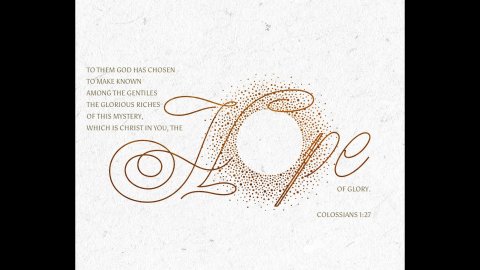 TO THEM GOD HAS CHOSEN
TO MAKE KNOWN
AMONG THE GENTILES
THE GLORIOUS RICHES
OF THIS MYSTERY,
WHICH IS CHRIST IN YOU, THE
Hope
OF GLORY.
COLOSSIANS 1:27